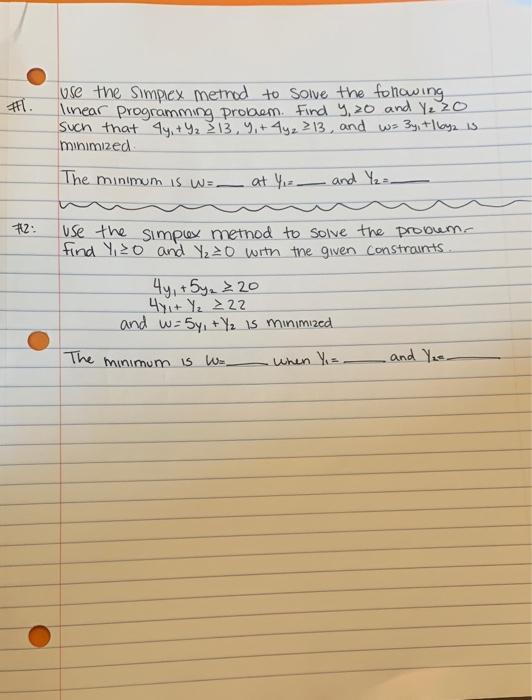 #1. Use the Simplex method to solve the following
linear programming problem. Find y₁≥0 and y₂≥0
such that 4y₁+y₂≥13, y₁+4y₂≥13, and w=3y₁+16y₂ is
minimized.
The minimum is w=___ at y₁=___ and y₂=___
#2: Use the simplex method to solve the problem.
Find y₁≥0 and y₂≥0 with the given constraints.
4y₁+5y₂≥20
4y₁+y₂≥22
and w=5y₁+y₂ is minimized
The minimum is w=___ when y₁=___ and y₂=___